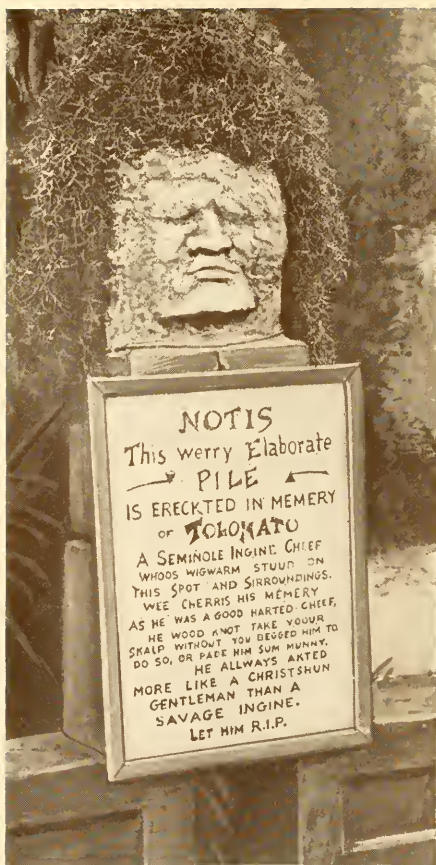 NOTIS
This werry Elaborate
PILE
IS ERECKTED IN MEMERY
OF TOLOMATO
A SEMINOLE INGINE CHEEF
WHOOS WIGWARM STUUD ON
THIS SPOT AND SIRROUNDINGS.
WEE CHERRIS HIS MEMERY
AS HE WAS A GOOD HARTED CHEEF,
HE WOOD KNOT TAKE YOUUR
SKALP WITHOUT YOU BEGGED HIM TO
DO SO, OR PADE HIM SUM MUNNY.
HE ALLWAYS AKTED
MORE LIKE A CHRISTSHUN
GENTLEMAN THAN A
SAVAGE INGINE.
LET HIM R.I.P.